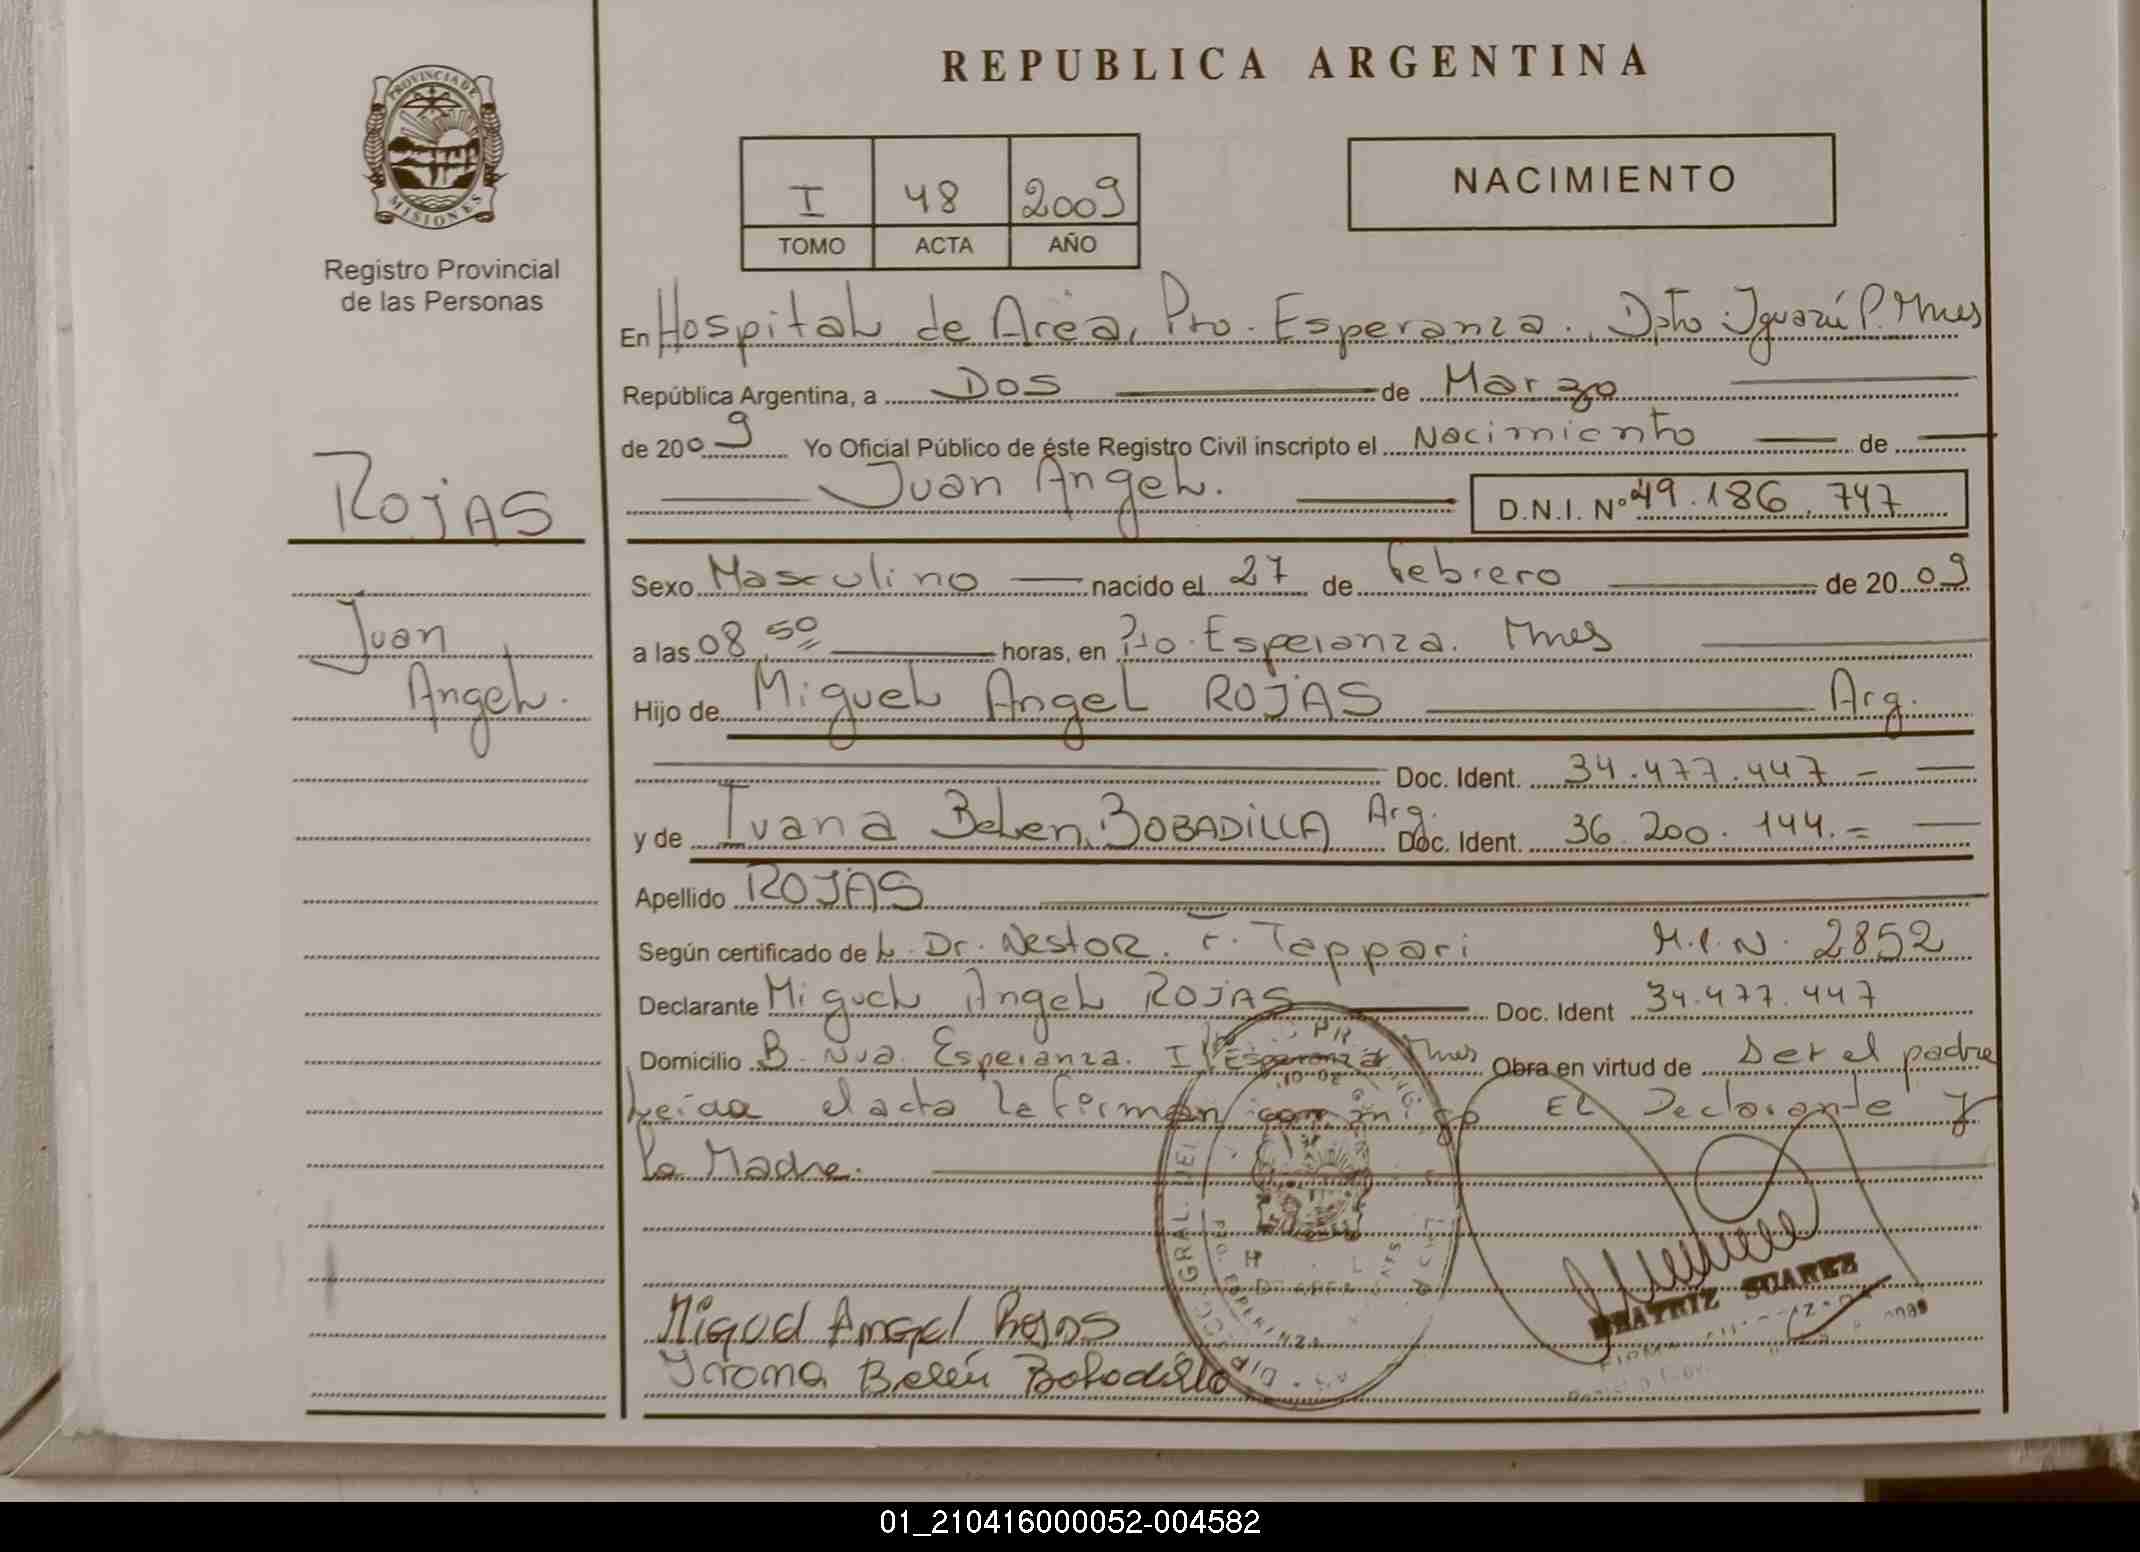 REPUBLICA ARGENTINA
PROVINCIA DE
MISIONES
Registro Provincial
de las Personas
I 48 2009
TOMO ACTA AÑO
NACIMIENTO
En Hospital de Area, Pto. Esperanza., Dpto Iguazú P. Mnes
República Argentina, a Dos de Marzo
de 2009 Yo Oficial Público de éste Registro Civil inscripto el Nacimiento de
Juan Angel. D.N.I. Nº 49.186.747
ROJAS
Juan
Angel.
Sexo Masculino nacido el 27 de febrero de 2009
a las 08,50 horas, en Pto. Esperanza. Mnes
Hijo de Miguel Angel ROJAS Arg.
Doc. Ident. 34.477.447 -
y de Ivana Belen, BOBADILLA Arg. Doc. Ident. 36.200.144.=
Apellido ROJAS
Según certificado de L. Dr. Nestor. F. Tappari M.P.N. 2852
Declarante Miguel Angel ROJAS Doc. Ident 34.477.447
Domicilio B. Nva. Esperanza. I Esperanza Mnes Obra en virtud de Ser el padre
Leida el acta la firman conmigo EL Declarante y
la Madre.
BEATRIZ SUAREZ
Miguel Angel Rojas
Belén Bobadilla
01_210416000052-004582